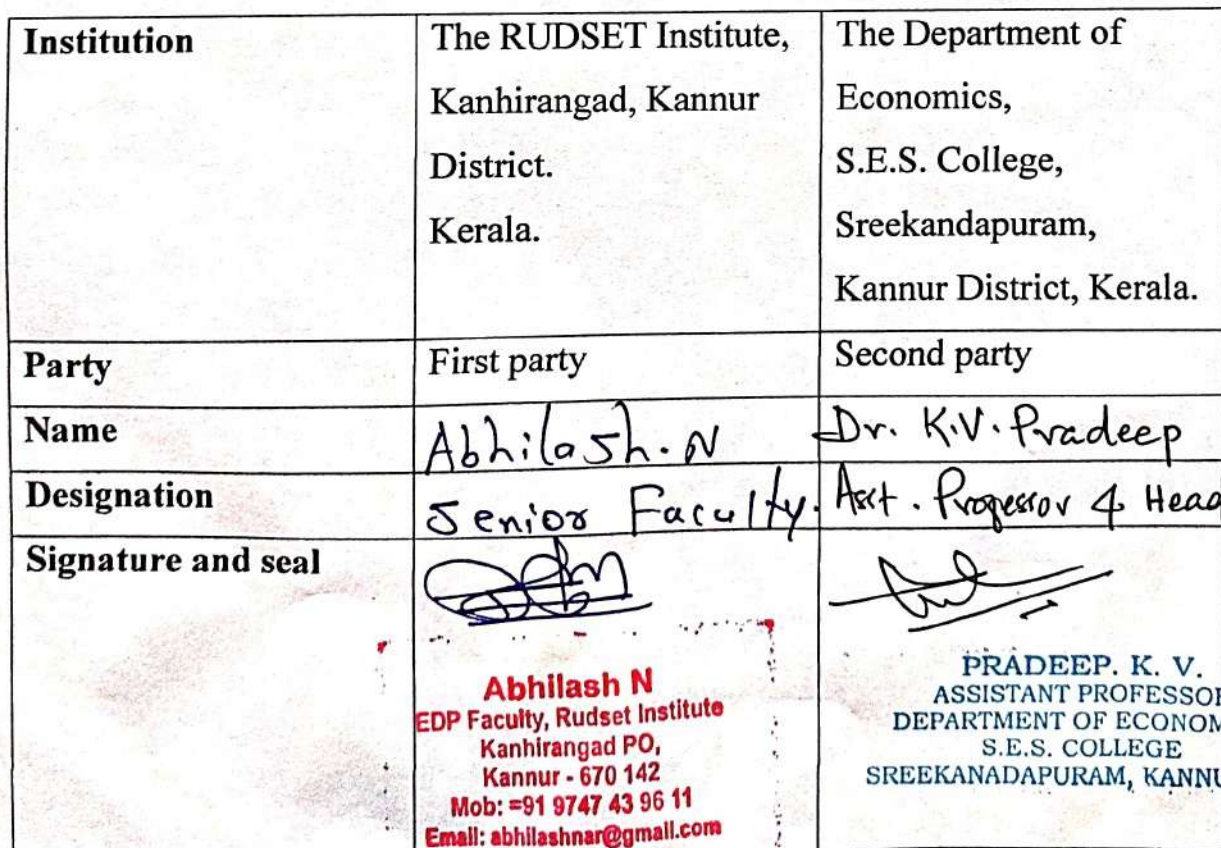 Institution
The RUDSET Institute,
Kanhirangad, Kannur
District.
Kerala.
The Department of
Economics,
S.E.S. College,
Sreekandapuram,
Kannur District, Kerala.
Party
First party
Second party
Name
Abhilash. N
Dr. K.V. Pradeep
Designation
Senior Faculty.
Asst. Professor & Head
Signature and seal
Abhilash N
EDP Faculty, Rudset Institute
Kanhirangad PO,
Kannur - 670 142
Mob: =91 9747 43 96 11
Email: abhilashnar@gmail.com
PRADEEP. K. V.
ASSISTANT PROFESSOR
DEPARTMENT OF ECONOM
S.E.S. COLLEGE
SREEKANADAPURAM, KANNU